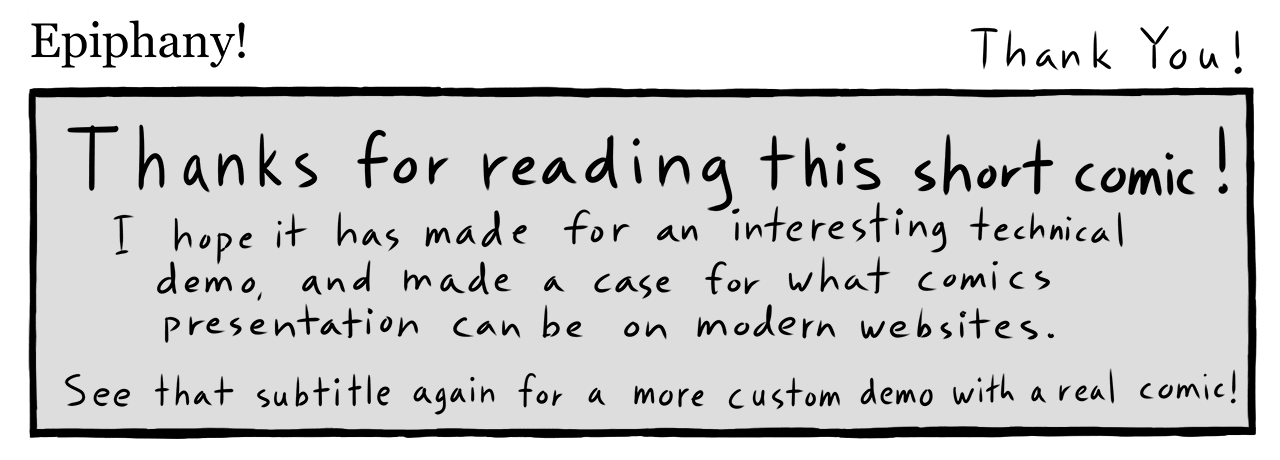 Epiphany!
Thank You!
Thanks for reading this short comic!
I hope it has made for an interesting technical
demo, and made a case for what comics
presentation can be on modern websites.
See that subtitle again for a more custom demo with a real comic!